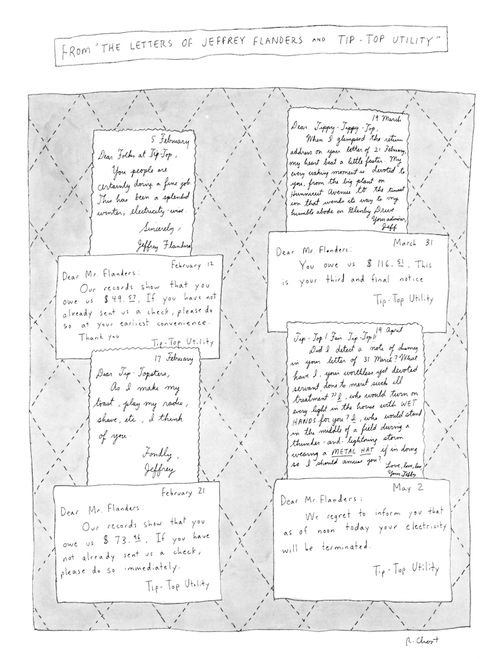 FROM "THE LETTERS OF JEFFREY FLANDERS AND TIP-TOP UTILITY"
5 February
Dear Folks at Tip-Top,
You people are
certainly doing a fine job.
This has been a splendid
winter, electricity-wise.
Sincerely,
Jeffrey Flanders
February 12
Dear Mr. Flanders:
Our records show that you
owe us $49.57. If you have not
already sent us a check, please do
so at your earliest convenience.
Thank you
Tip-Top Utility
17 February
Dear Tip-Topsters,
As I make my
toast, play my radio,
shave, etc., I think
of you.
Fondly,
Jeffrey
February 21
Dear Mr. Flanders
Our records show that you
owe us $73.96. If you have
not already sent us a check,
please do so immediately.
Tip-Top Utility
19 March
Dear Tippy-Tippy-Top,
When I glimpsed the return
address on your letter of 21 February
my heart beat a little faster. My
every waking moment is devoted to
you, from the big plant on
Avenue to the
one that wends its way to my
humble abode on Drive
Your admirer,
Jeff
March 31
Dear Mr. Flanders:
You owe us $116. This
is your third and final notice
Tip-Top Utility
19 April
Tip-Top! Fair Tip-Top!!
Did I detect a note of
in your letter of 31 March? What
have I, your worthless yet devoted
servant done to merit such ill
treatment?? I, who would turn on
every light in the house with WET
HANDS for you? I, who would stand
in the middle of a field during a
thunder-and-lightning storm
wearing a METAL HAT if in doing
so I should amuse you?
Love, love, love,
Your Jeffy
May 2
Dear Mr. Flanders:
We regret to inform you that
as of noon today your electricity
will be terminated.
Tip-Top Utility
R. Chast